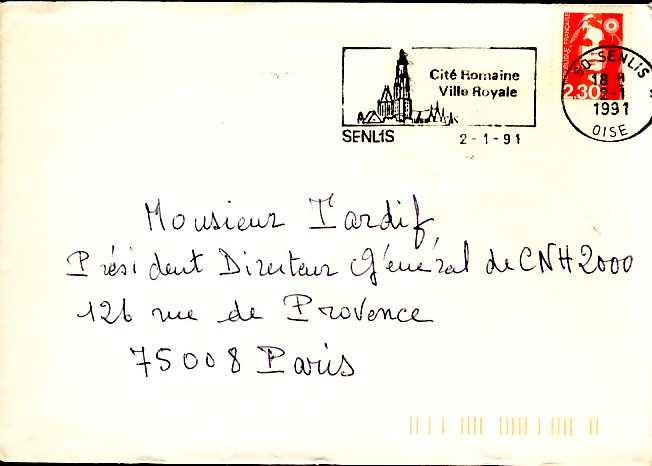 RÉPUBLIQUE FRANÇAISE
2.30
60 SENLIS
18 H
2-1
1991
OISE
Cité Romaine
Ville Royale
SENLIS
2-1-91
Monsieur Tardif
Président Directeur Général de CNH 2000
126 rue de Provence
75008 Paris